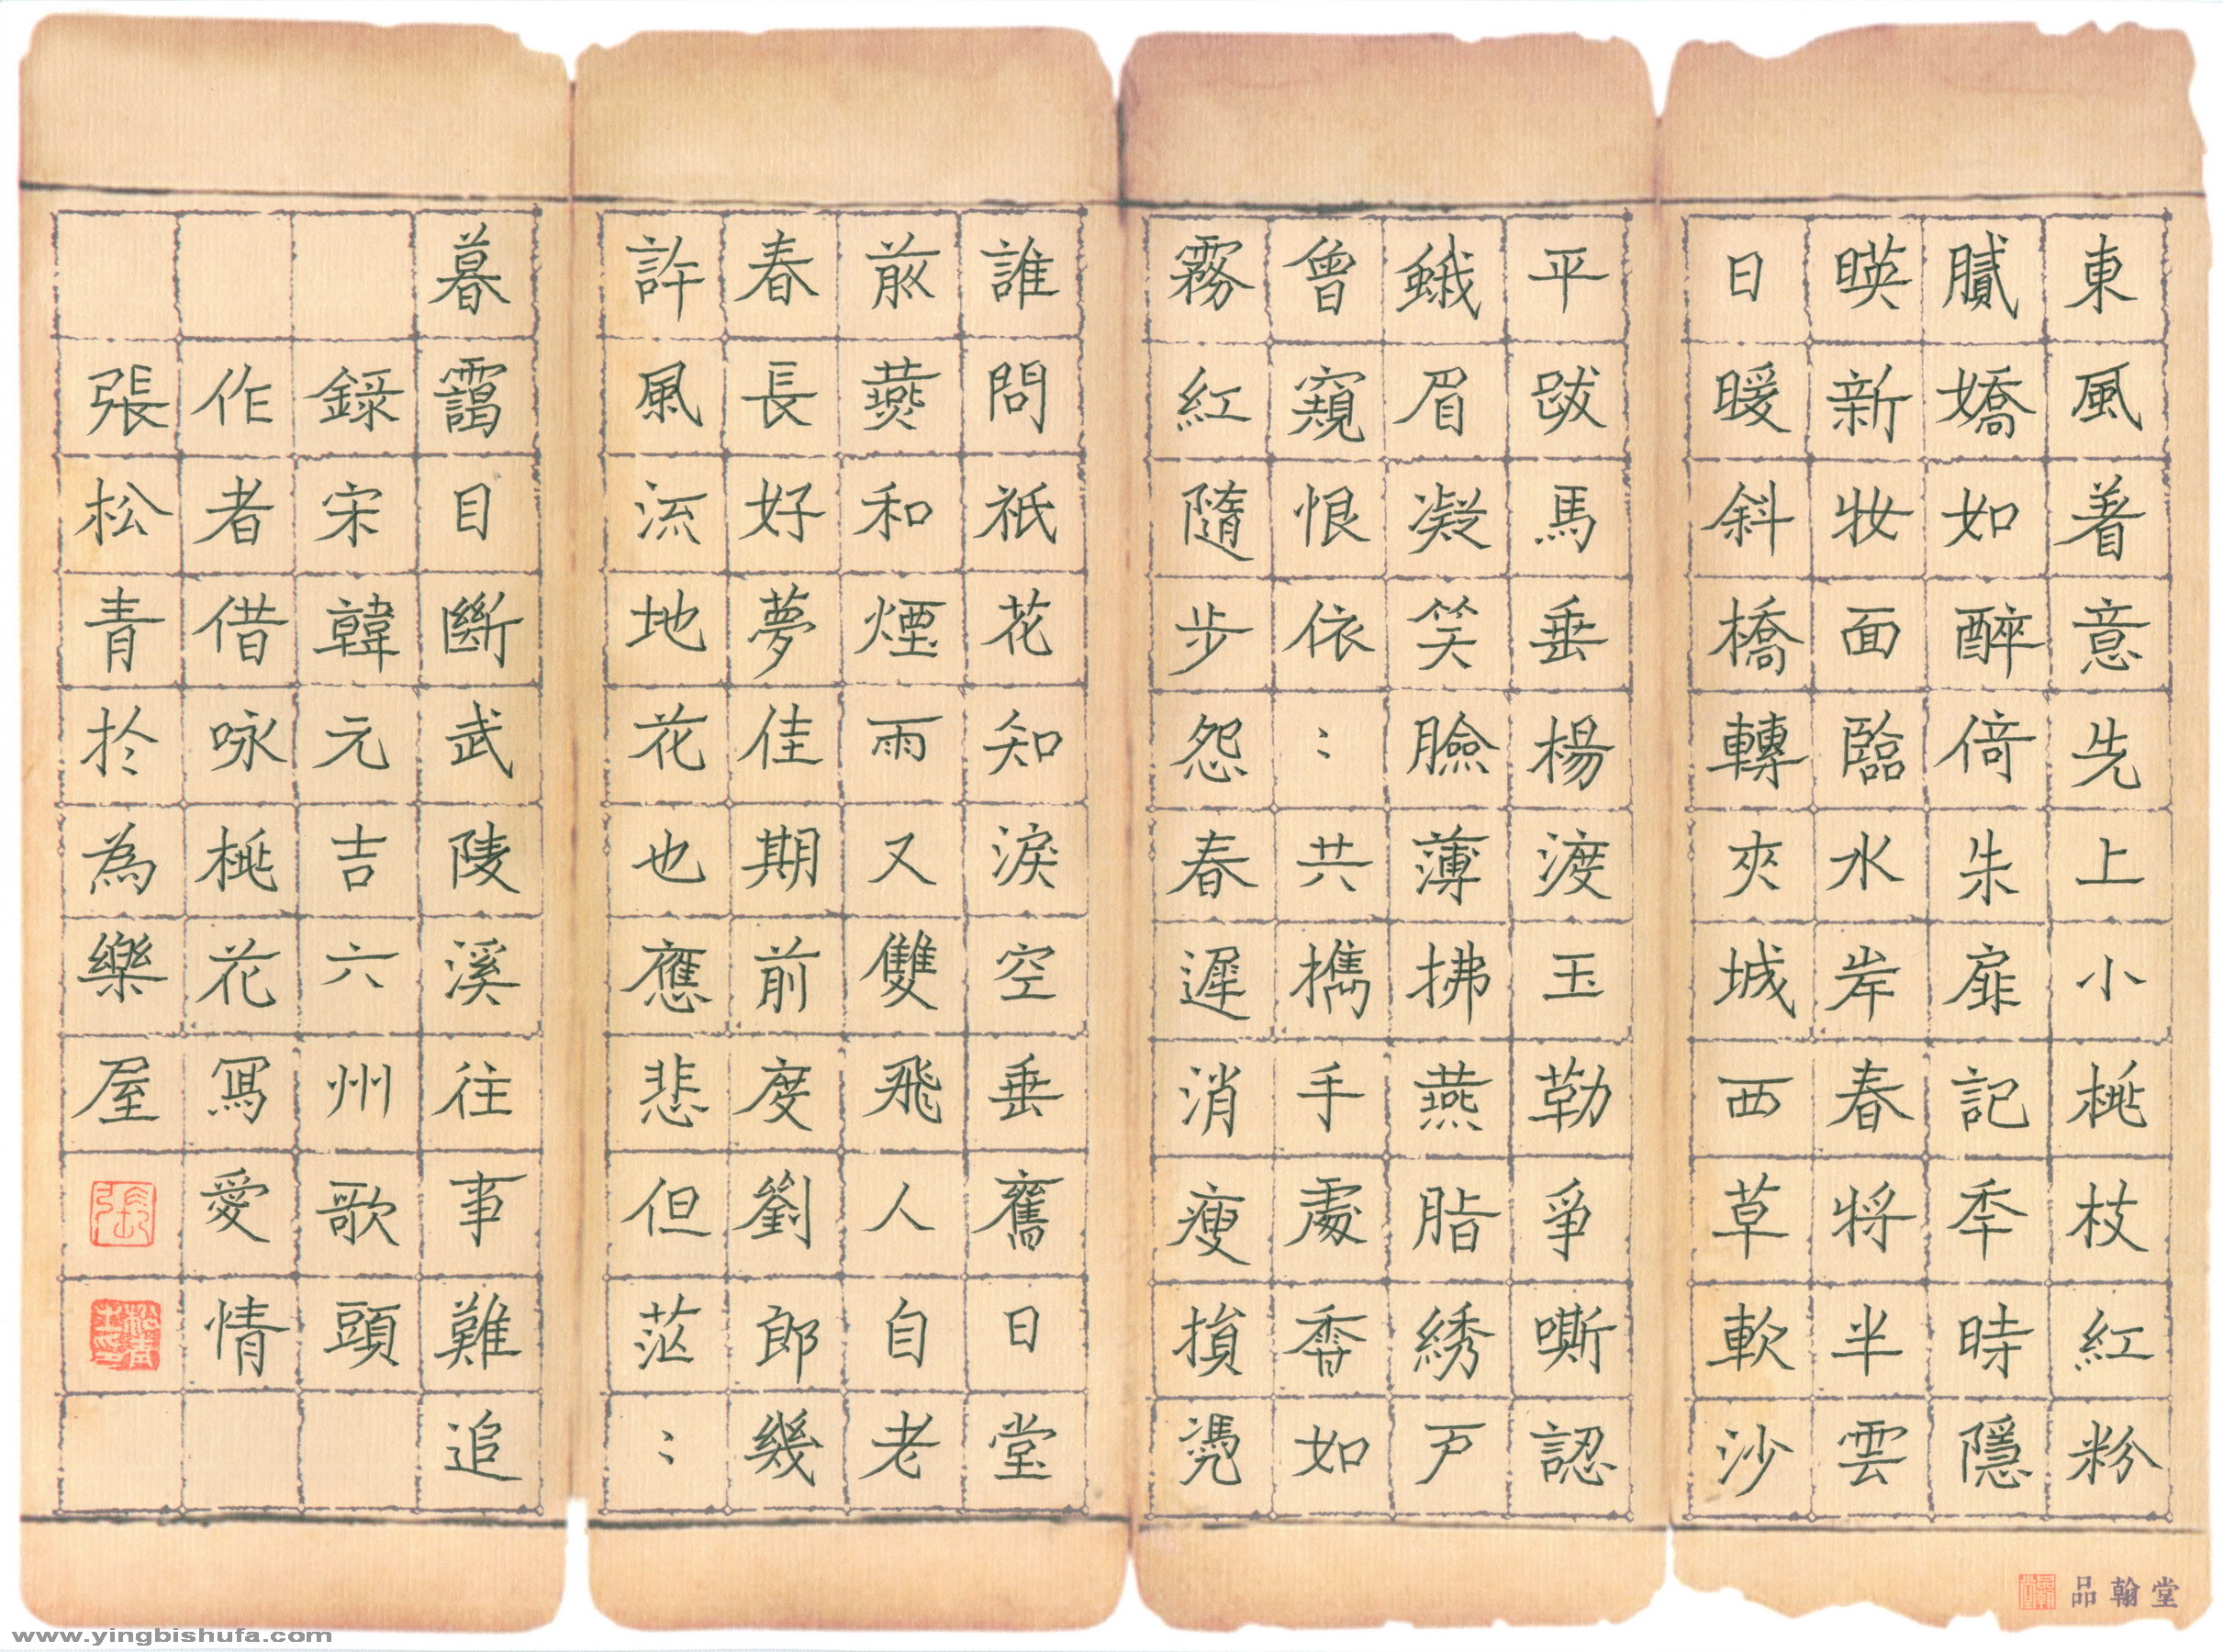 東風着意先上小桃枝紅粉
膩嬌如醉倚朱扉記秊時隱
暎新妝面臨水岸春將半雲
日暖斜橋轉夾城西草軟沙
平跋馬垂楊渡玉勒爭嘶認
蛾眉凝笑臉薄拂燕脂綉戶
曾窺恨依〻共攜手處香如
霧紅隨步怨春遲消瘦損憑
誰問祇花知淚空垂舊日堂
前燕和煙雨又雙飛人自老
春長好夢佳期前度劉郎幾
許風流地花也應悲但茫〻
暮靄目斷武陵溪往事難追
錄宋韓元吉六州歌頭
作者借咏桃花寫愛情
張松青於為樂屋
張
品翰堂
www.yingbishufa.com